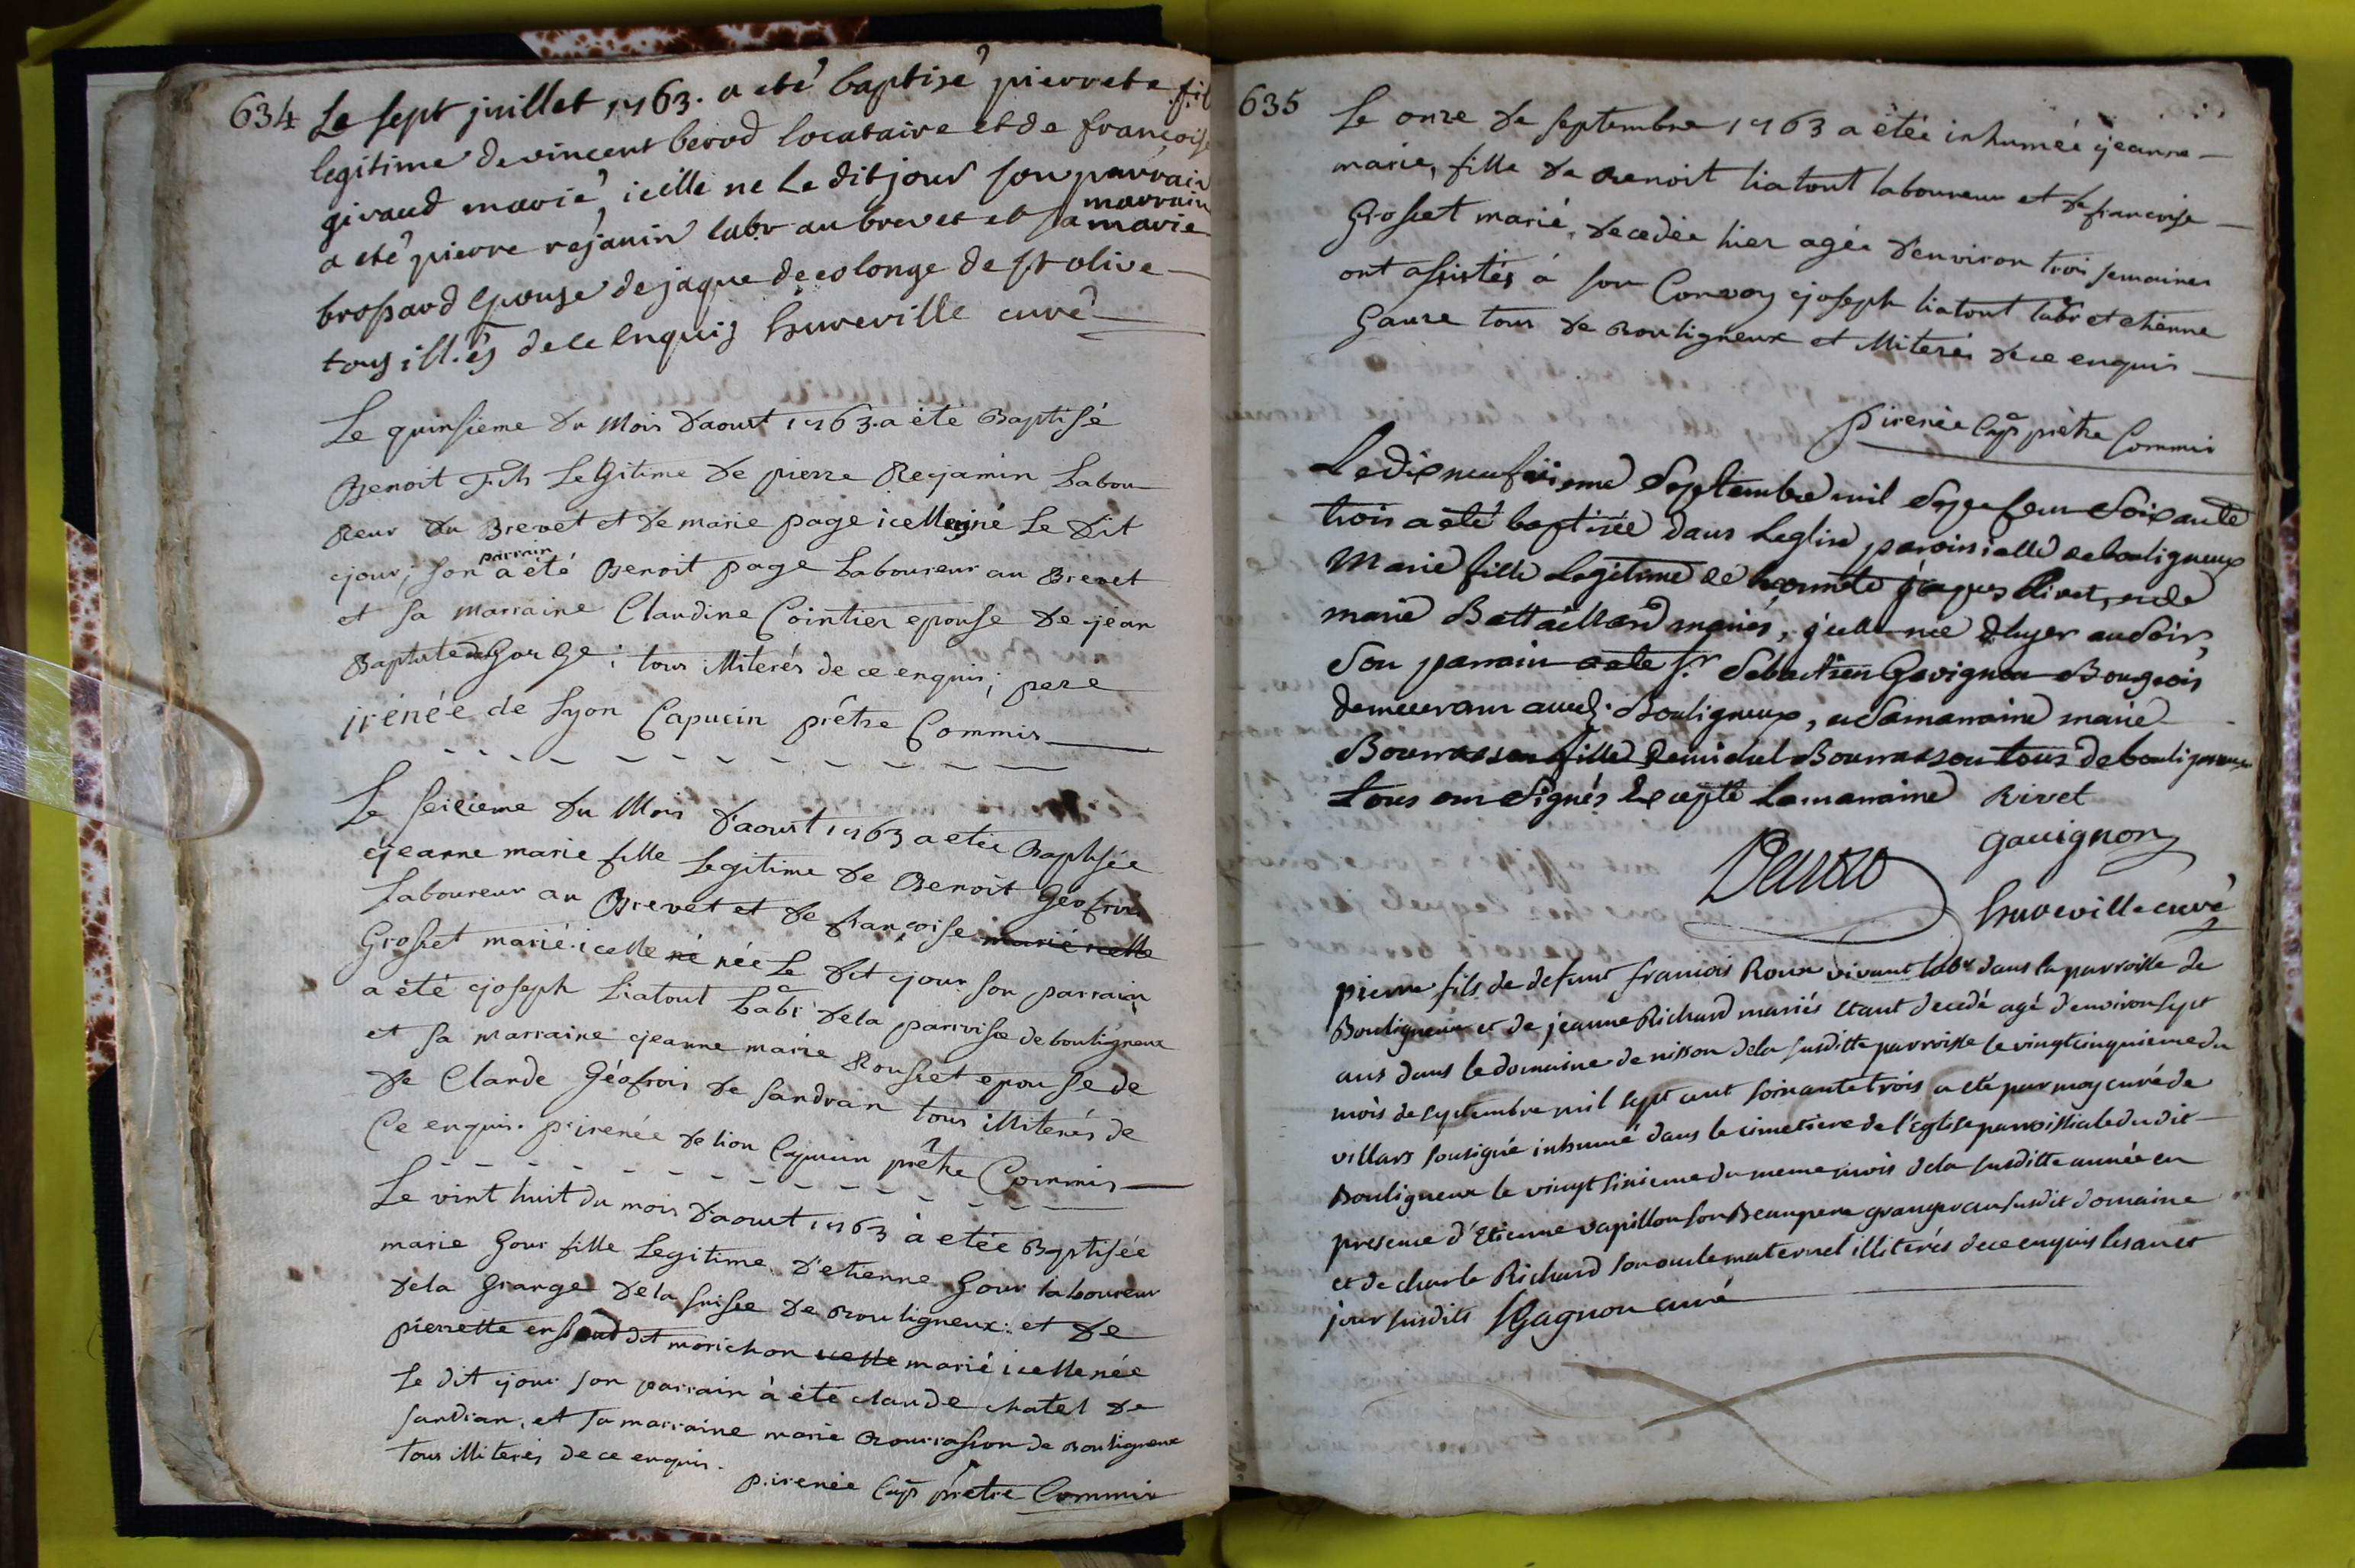 634
Le sept juillet 1763. a eté baptisé pierrete fil
legitime de vincent berod locataire et de françoise
giraud marié, icelle ne le dit jour son parrain
a eté pierre rejanin labr au brevet et sa marraine marie
brossard epouse de jaque decolonge de st olive
tous ill.és de ce enquis huveville curé
Le quinsieme du Mois d'aoust 1763. a été Baptisé
Benoit Fils Legitime de pierre Rejanin Labou
Reur du Brevet et de marie page icelluy né Le dit
jour; son parrain a été Benoit page Laboureur au Brevet
et sa marraine Claudine Cointier epouse de jean
Baptiste Gouge; tous illiterés de ce enquis; pere
irénée de Lyon Capucin prêtre Commis
Le seizieme du Mois d'aoust 1763 a etée Baptisée
jeanne marie fille Legitime de Benoit Geofroi
Laboureur au Brevet et de françoise marié icelle
Grosset marié. icelle né née Le dit jour son parrain
a été joseph Liatout Labr dela parroisse de bouligneux
et sa marraine jeanne marie Rousset epouse de
de Claude Géofroi de sandran tous illiterés de
Ce enquis. p. irenée de lion Capucin prêtre Commis
Le vint huit du mois d'aoust 1763 à etée Baptisée
marie Gour fille Legitime d'etienne Gour laboureur
dela Grange dela suisse de Bouligneux: et de
pierrette dit morichon icelle marié icelle née
Le dit jour son parrain à été claude chatel de
sandran, et sa marraine marie Bourrasson de Bouligneux
tous illiterés de ce enquis.
p. irenée Cap prêtre Commis
635
Le onze de septembre 1763 a etée inhumée jeanne
marie, fille de Benoit liatout laboureur et de francoise
Grosset marié, decedée hier agée d'environ trois semaines
ont assistés à son Convoy joseph liatout labr et etienne
Gause tous de Bouligneux et illiterés de ce enquis
p irenée Cap prêtre Commis
Le dix neufvieme Septembre mil Sept Cent Soixante
trois a eté baptisée dans Leglise paroissialle de bouligneux
Marie fille Legitime de jaques Rivet, et de
marie Battaillard mariés, icelle née d'hyer au Soir,
Son parrain a ete Sr. Sebastien Gavignon Bourgeois
demeurant aud. Bouligneux, et Sa marraine marie
Bourrasson fille de michel Bourrasson tous de bouligneux
tous ont Signés Excepté La marraine Rivet
gavignon
huveville curé
pierre fils de defunt francois Roux vivant labr dans la parroisse de
Bouligneux et de jeanne Richard mariés etant decedé agé d'environ sept
ans dans le domaine de nisson dela susditte parroisse le vingt cinquieme du
mois de septembre mil sept cent soixante trois a eté par moy curé de
villars sousigné inhumé dans le cimetiere de l'Eglise parroissiale du dit
Bouligneux le vingt sixieme du meme mois dela susditte année en
presence d'Etienne vapillon son Beaupere granger au susdit domaine
et de charle Richard son oncle maternel illiterés de ce enquis les an et
jour susdits Gagnon curé